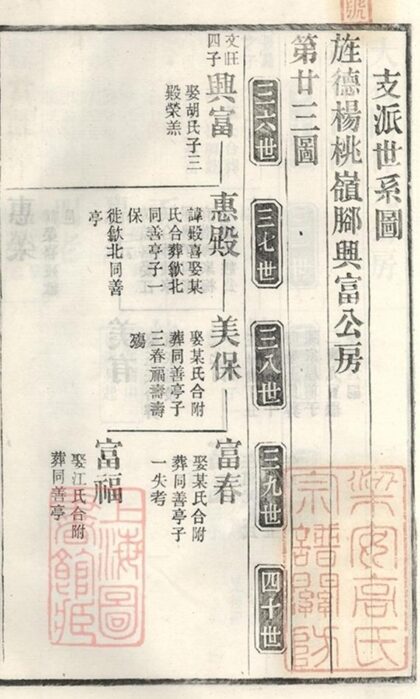 支派世系圖
旌德楊桃嶺腳興富公房
第廿三圖
三六世
三七世
三八世
三九世
四十世
文旺
四子
興富
娶胡氏子三
殿榮羔
惠殿
諱殿喜娶某
氏合葬歙北
同善亭子一
保
徙歙北同善
亭
美保
娶某氏合附
葬同善亭子
三春福壽壽
殤
富春
娶某氏合附
葬同善亭子
一失考
富福
娶江氏合附
葬同善亭
梁安高氏
宗譜關防
上海圖
書館藏
號